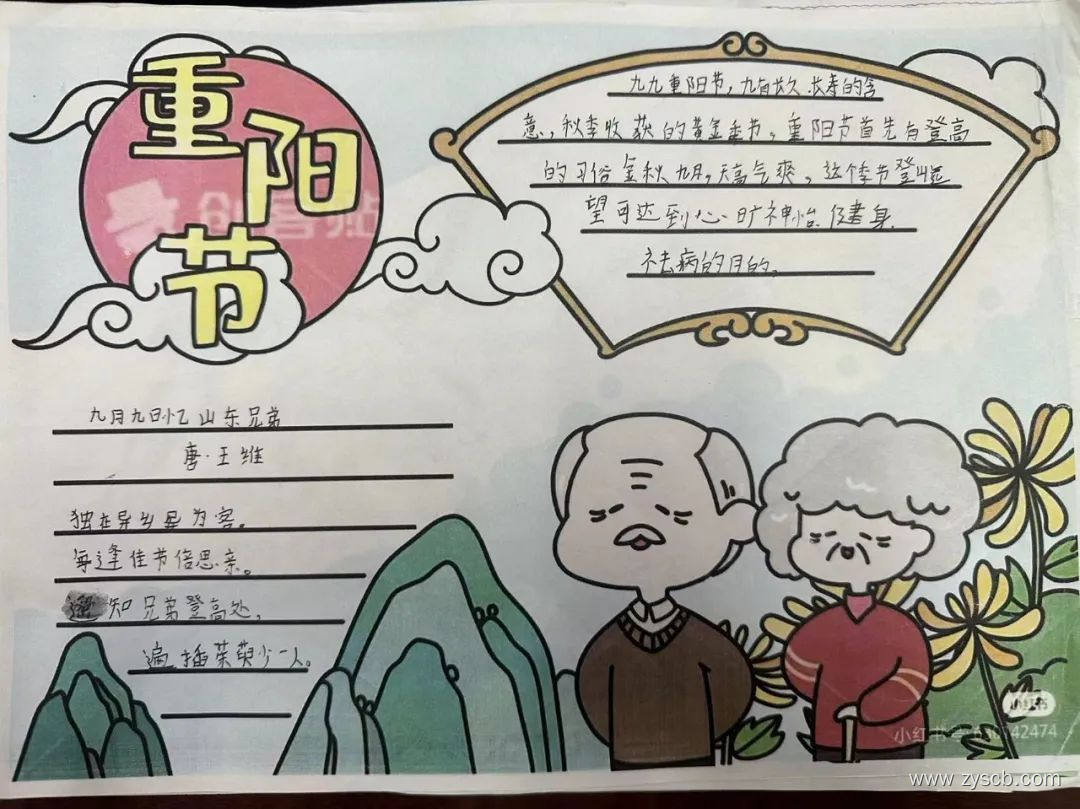 重阳节
九九重阳节,九有长久 长寿的含
意,秋季收获的黄金季节。重阳节首先有登高
的习俗 金秋九月,天高气爽,这个季节登山远
望可达到心旷神怡 健身
祛病的目的。
九月九日忆山东兄弟
唐·王维
独在异乡异为客。
每逢佳节倍思亲。
遥知兄弟登高处,
遍插茱萸少一人。
创客贴
小红书
小红书号
42474
www.zyscb.com